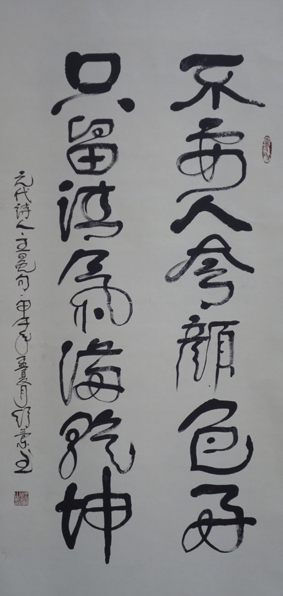 不要人夸顏色好
只留清氣滿乾坤
元代诗人·王冕句·甲午月书